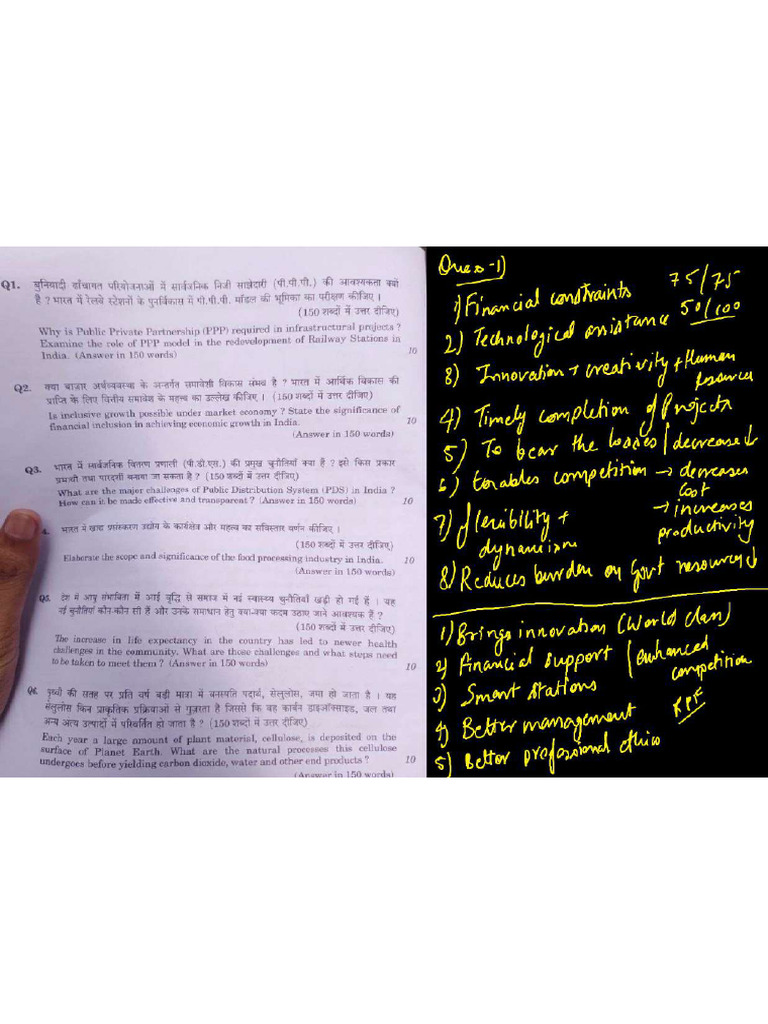 Q1. बुनियादी ढाँचागत परियोजनाओं में सार्वजनिक निजी साझेदारी (पी.पी.पी.) की आवश्यकता क्यों
है ? भारत में रेलवे स्टेशनों के पुनर्विकास में पी.पी.पी. मॉडल की भूमिका का परीक्षण कीजिए ।
(150 शब्दों में उत्तर दीजिए)
Why is Public Private Partnership (PPP) required in infrastructural projects ?
Examine the role of PPP model in the redevelopment of Railway Stations in
India. (Answer in 150 words) 10
Q2. क्या बाज़ार अर्थव्यवस्था के अन्तर्गत समावेशी विकास संभव है ? भारत में आर्थिक विकास की
प्राप्ति के लिए वित्तीय समावेश के महत्व का उल्लेख कीजिए । (150 शब्दों में उत्तर दीजिए)
Is inclusive growth possible under market economy ? State the significance of
financial inclusion in achieving economic growth in India. 10
(Answer in 150 words)
Q3. भारत में सार्वजनिक वितरण प्रणाली (पी.डी.एस.) की प्रमुख चुनौतियाँ क्या हैं ? इसे किस प्रकार
प्रभावी तथा पारदर्शी बनाया जा सकता है ? (150 शब्दों में उत्तर दीजिए)
What are the major challenges of Public Distribution System (PDS) in India ?
How can it be made effective and transparent ? (Answer in 150 words) 10
4. भारत में खाद्य प्रसंस्करण उद्योग के कार्यक्षेत्र और महत्व का सविस्तार वर्णन कीजिए ।
(150 शब्दों में उत्तर दीजिए)
Elaborate the scope and significance of the food processing industry in India.
(Answer in 150 words) 10
Q5. देश में आयु संभाविता में आई वृद्धि से समाज में नई स्वास्थ्य चुनौतियाँ खड़ी हो गई हैं । यह
नई चुनौतियाँ कौन-कौन सी हैं और उनके समाधान हेतु क्या-क्या कदम उठाए जाने आवश्यक हैं ?
(150 शब्दों में उत्तर दीजिए)
The increase in life expectancy in the country has led to newer health
challenges in the community. What are those challenges and what steps need
to be taken to meet them ? (Answer in 150 words) 10
Q6. पृथ्वी की सतह पर प्रति वर्ष बड़ी मात्रा में वनस्पति पदार्थ, सेलुलोस, जमा हो जाता है । यह
सेलुलोस किन प्राकृतिक प्रक्रियाओं से गुज़रता है जिससे कि वह कार्बन डाइऑक्साइड, जल तथा
अन्य अंत्य उत्पादों में परिवर्तित हो जाता है ? (150 शब्दों में उत्तर दीजिए)
Each year a large amount of plant material, cellulose, is deposited on the
surface of Planet Earth. What are the natural processes this cellulose
undergoes before yielding carbon dioxide, water and other end products ? 10
(Answer in 150 words)
Ques-1)
1) Financial constraints 75/75
2) Technological assistance 50/100
3) Innovation + creativity + Human
resources
4) Timely completion of Projects
5) To bear the losses / decrease ↓
6) Enables competition → decreases
cost
→ increases
productivity
7) flexibility +
dynamism
8) Reduces burden on Govt resources ↓
1) Brings innovation (World class)
2) Financial support / enhanced
competition
3) Smart stations
4) Better management RPF
5) Better professional ethics